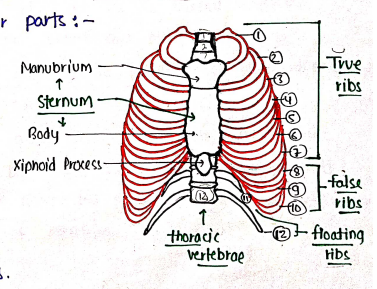 r parts :-
Manubrium
Sternum
Body
Xiphoid Process
thoracic
vertebrae
1
2
12
1
2
3
4
5
6
7
8
9
10
11
12
True
ribs
false
ribs
floating
ribs
s.